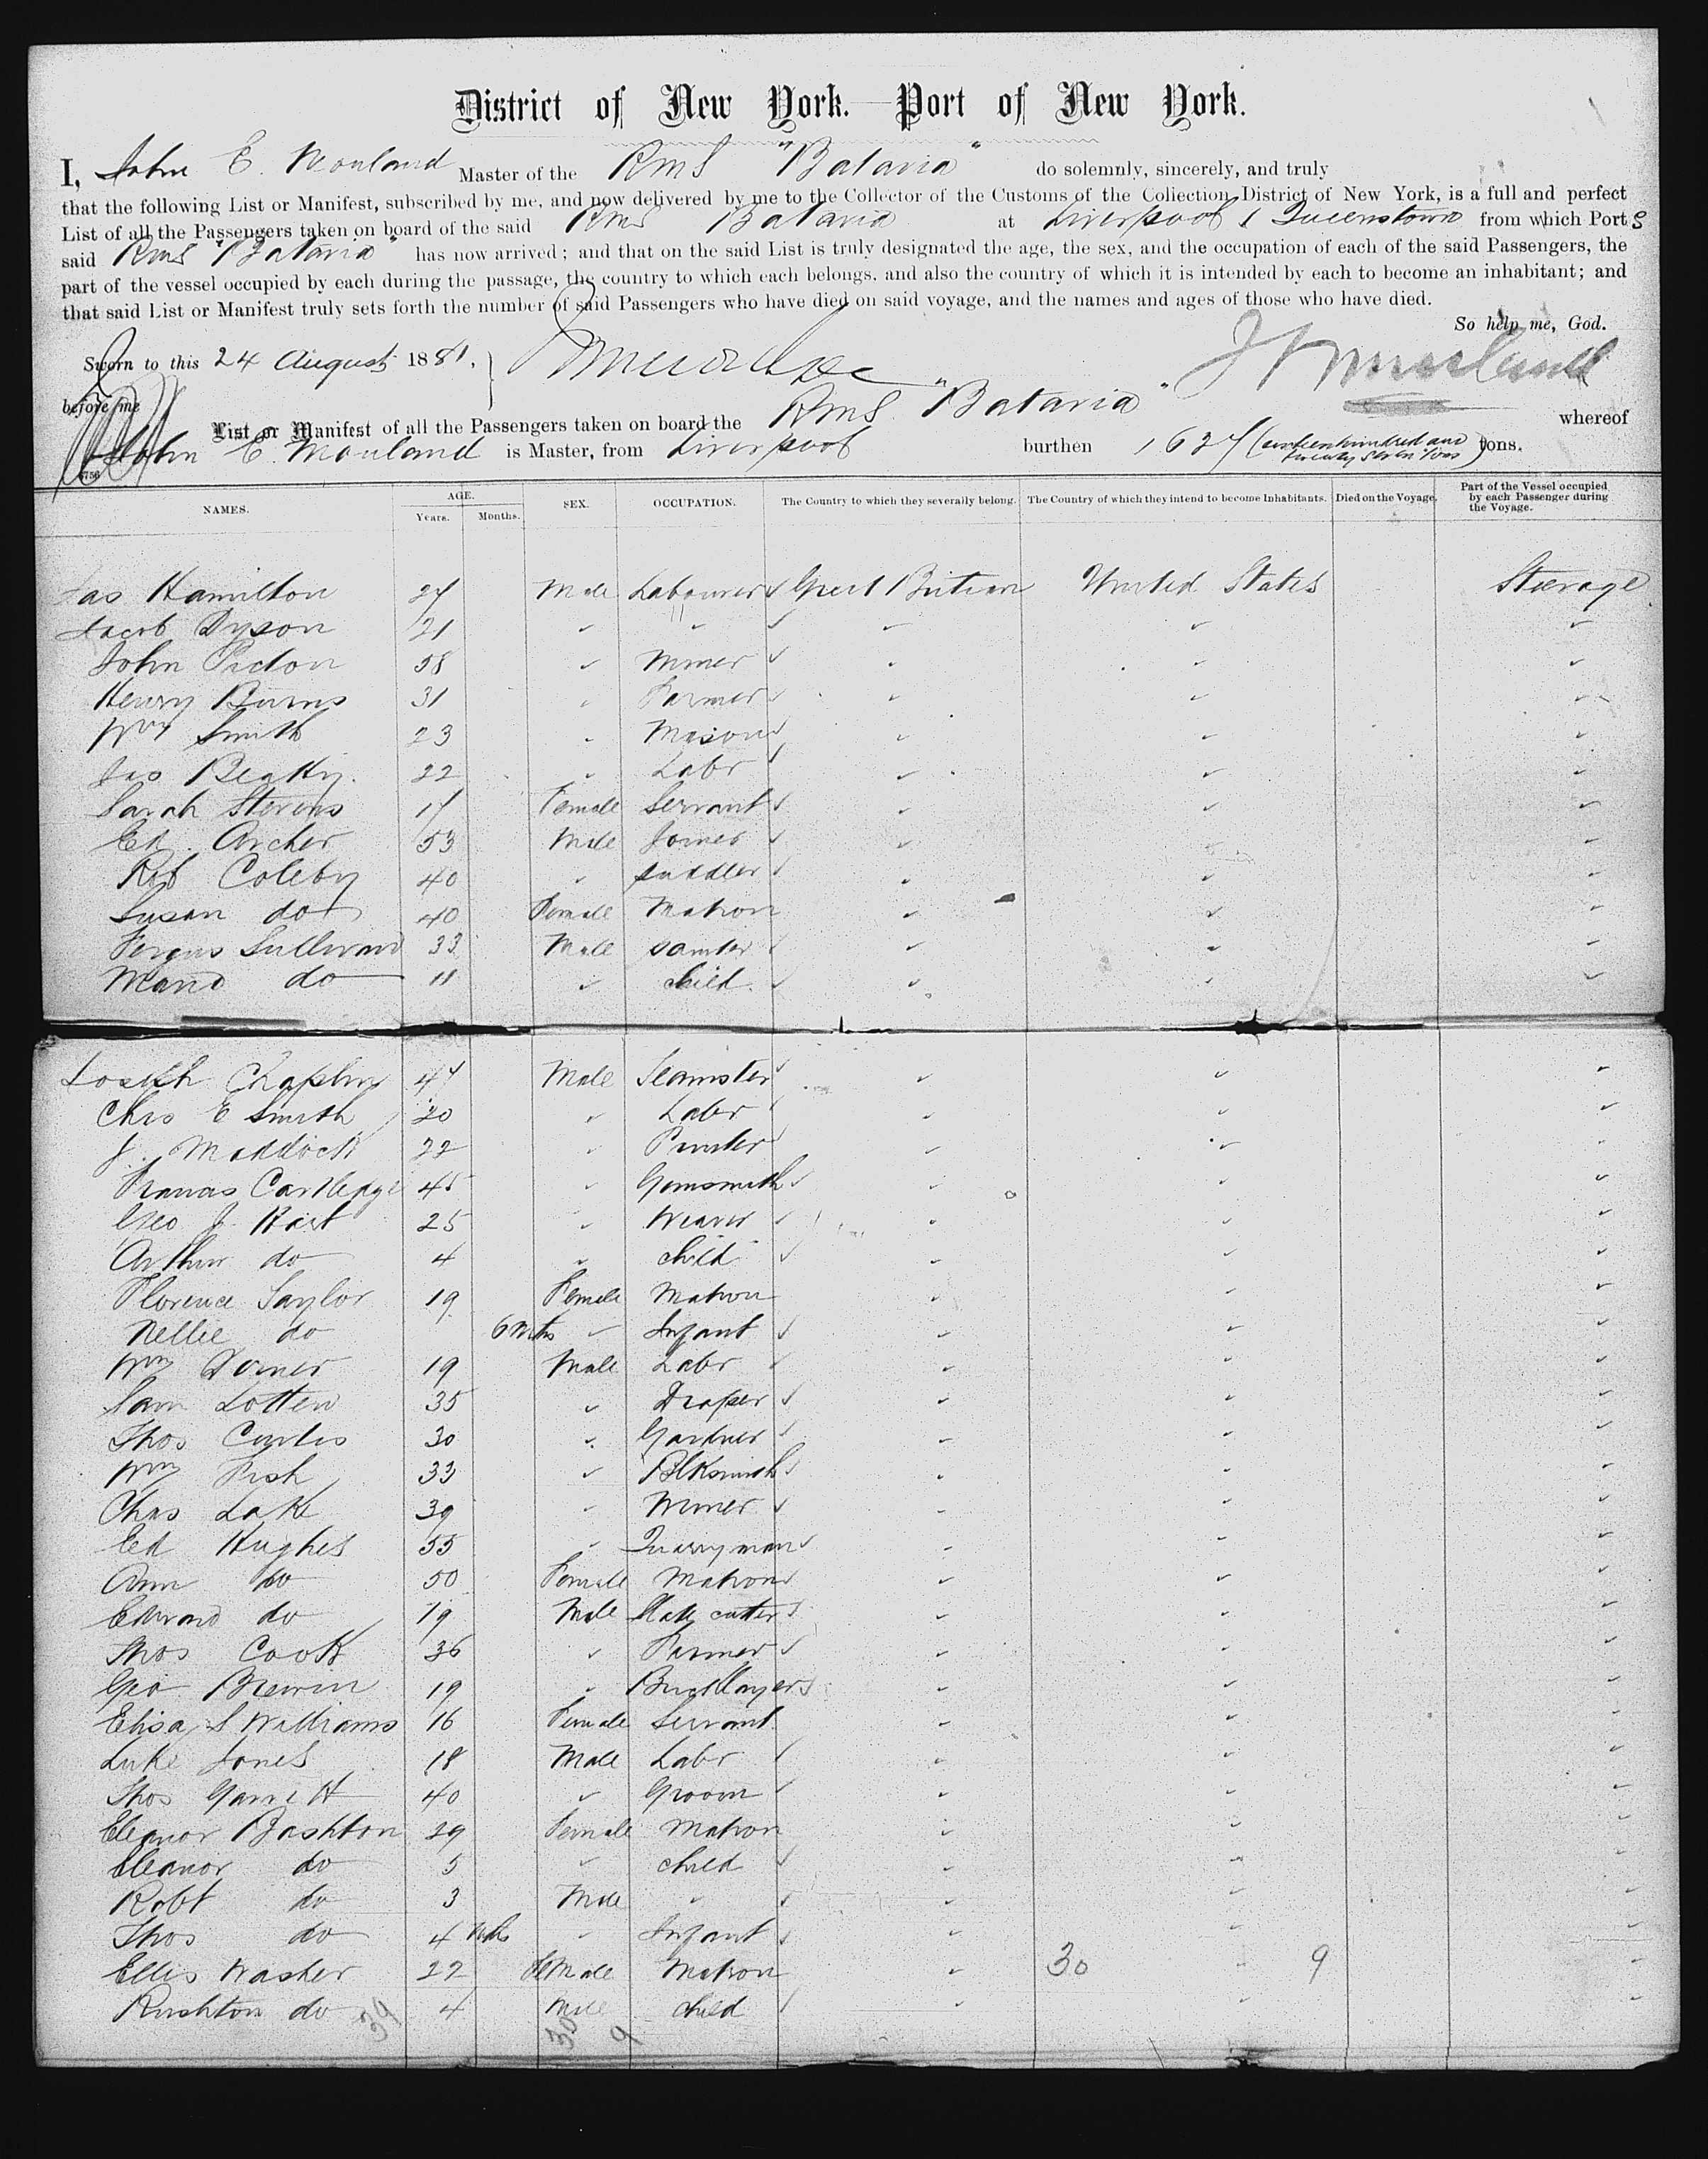 District of New York. Port of New York.
I, John E. Mouland Master of the RmS "Batavia" do solemnly, sincerely, and truly
that the following List or Manifest, subscribed by me, and now delivered by me to the Collector of the Customs of the Collection District of New York, is a full and perfect
List of all the Passengers taken on board of the said RmS Batavia at Liverpool & Queenstown from which Port s
said RmS "Batavia" has now arrived; and that on the said List is truly designated the age, the sex, and the occupation of each of the said Passengers, the
part of the vessel occupied by each during the passage, the country to which each belongs, and also the country of which it is intended by each to become an inhabitant; and
that said List or Manifest truly sets forth the number of said Passengers who have died on said voyage, and the names and ages of those who have died.
So help me, God.
Sworn to this 24 August 1881.
before me
List or Manifest of all the Passengers taken on board the RmS "Batavia" whereof
John E. Mouland is Master, from Liverpool burthen 1627 tons.
NAMES. AGE. Years. Months. SEX. OCCUPATION. The Country to which they severally belong. The Country of which they intend to become Inhabitants. Died on the Voyage. Part of the Vessel occupied by each Passenger during the Voyage.
Jas Hamilton 27 Male Labourer Great Britian United States Steerage
Jacob Dyson 21
John Picton 58 Miner
Henry Burns 31 Farmer
Wm Smith 23 Mason
Jas Beatty. 22 Labr
Sarah Stevens 17 Female Servant
Ed. Archer 53 Male Joiner
Rob Coleby 40 puddler
Susan do 40 Female Matron
Fergus Sullivan 33 Male
do 11 child
Joseph Chaplin 47 Male Teamster
Chas E Smith 20 Labr
J. Maddock 22
Francis Cartledge 45
Geo J. 25 Weaver
Arthur do 4 child
Florence Taylor 19 Female Matron
Nellie do 6 Mths Infant
Wm 19 Male Labr
Sam Lotten 35 Draper
Thos Curtis 30 Gardner
Wm Fish 33 Blksmith
Chas Lake 39 Miner
Ed Hughes 55 Quarryman
Ann do 50 Female Matron
Edward do 19 Male Slate cutter
Thos Cook 36 Farmer
Geo Brewin 19 Bricklayer
Elisa S Williams 16 Female Servant
Luke Jones 18 Male Labr
Thos Garrett 40 Groom
Eleanor Bashton 29 Female Matron
Eleanor do 5 child
Robt do 3 Male
Thos do 4 Mths Infant
Ellis Washer 22 Female Matron 30 9
Rushton do 4 Male child
39 30 9